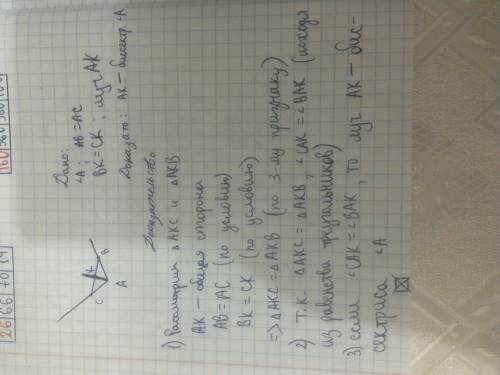 Дано:
∠A; AB = AC
BK = CK; луч AK
Доказать: AK – биссектр. ∠A
C K B
A
Доказательство
1) Рассмотрим △AKC и △AKB
AK – общая сторона
AB = AC (по условию)
BK = CK (по условию)
=> △AKC = △AKB (по 3-му признаку)
2) Т.к. △AKC = △AKB, ∠CAK = ∠BAK (исходя
из равенства треугольников)
3) если ∠CAK = ∠BAK, то луч AK – бис-
сектриса ∠A